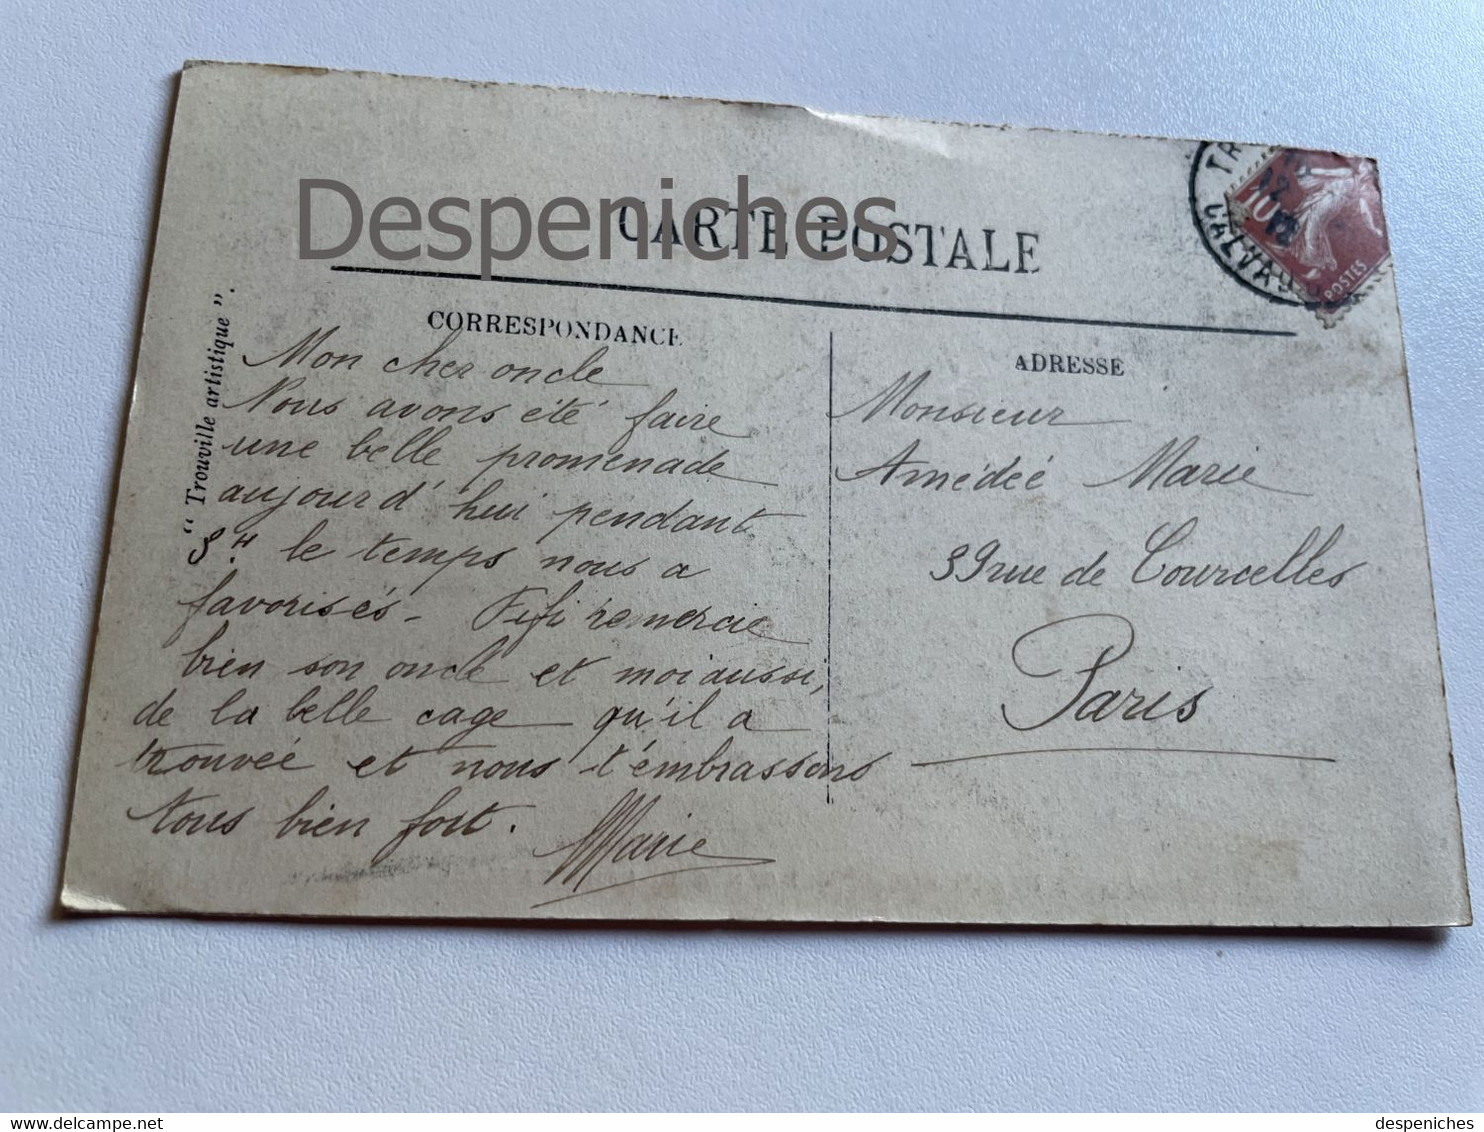 Despeniches
CARTE POSTALE
CORRESPONDANCE
ADRESSE
" Trouville artistique ".
Mon cher oncle
Nous avons été faire
une belle promenade
aujourd'hui pendant
3H. le temps nous a
favorisés - Fifi remercie
bien son oncle et moi aussi,
de la belle cage qu'il a
trouvée et nous t'embrassons
tous bien fort.
Marie
Monsieur
Amédéé Marie
39 rue de Courcelles
Paris
10
POSTES
delcampe.net
despeniches